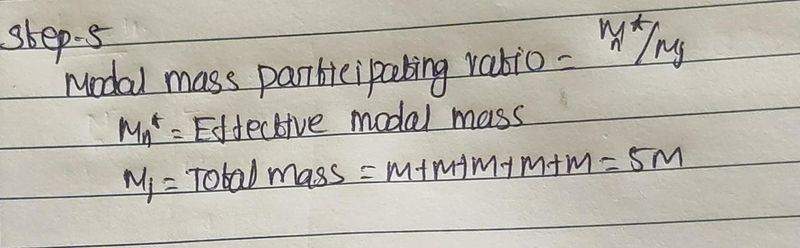 Step-5
Modal mass participating ratio = Mn*/Mj
Mn* = Effective modal mass
Mj = Total mass = M+M+M+M+M = 5M